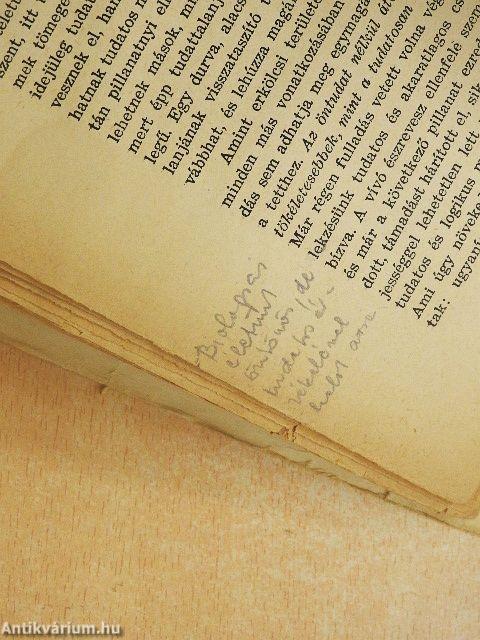 szent, itt
mek tömege
idejüleg tuda
vesznek el, ha
hatnak tudatos
tán pillanatnyi el
lehetnek utások, min
mert épp tudattalan
legű. Egy durva, alacs
lanjának visszataszító
vábbhat, és lehúzza magá
Amint erkölcsi terület
minden más vonatkozásában
dás sem adhatja meg egymagá
a tetthez. Az öntudat nélkül át
tökéletesebbek, mint a tudatosan
Már régen fulladás vetett volna vég
lekzésünk tudatos és akaratlagos
bízva. A vívó észrevesz ellenfele szem
és már a következő pillanat ezred
dott, támadást hárított el, sik
jességgel lehetetlen lett
tudatos és logikus m
Ami úgy növeke
tak: ugyan
Biologiai
életmű
ösztönös/de
tudatos é-
halot arra
Antikvárium.hu